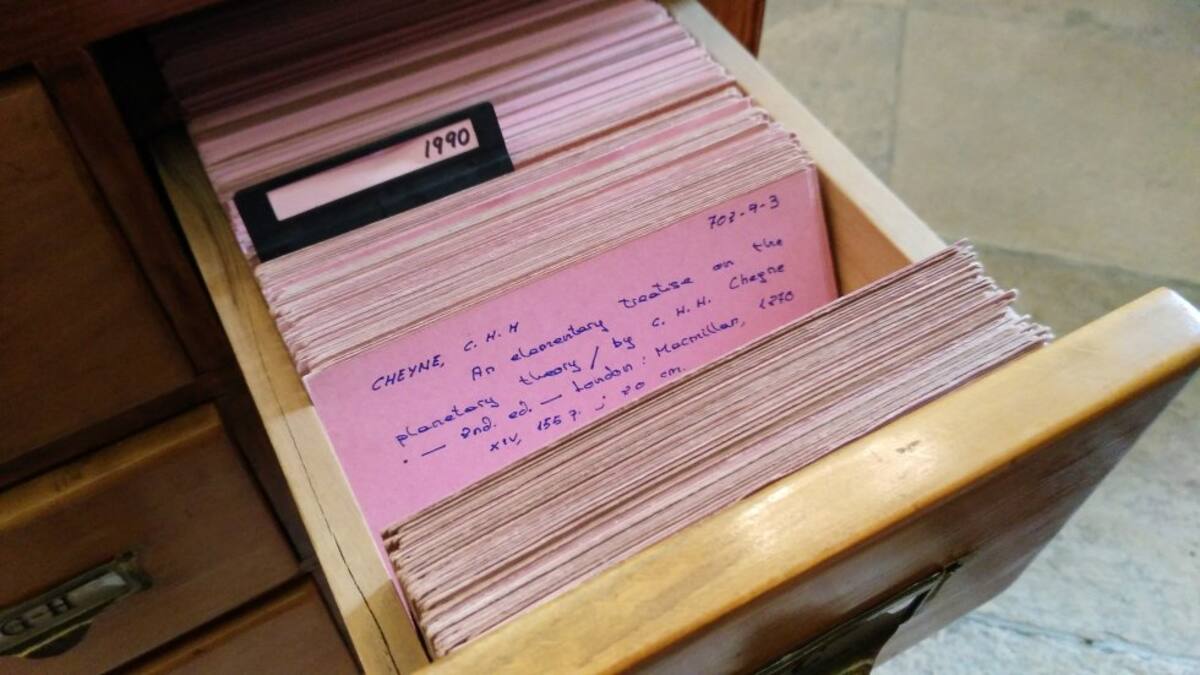 1990
703-9-3
CHEYNE, C. H. H
An elementary treatise on the
planetary theory / by C. H. H. Cheyne
. — 2nd. ed. — London : Macmillan, 1870
xiv, 155 p. ; 20 cm.
G-H